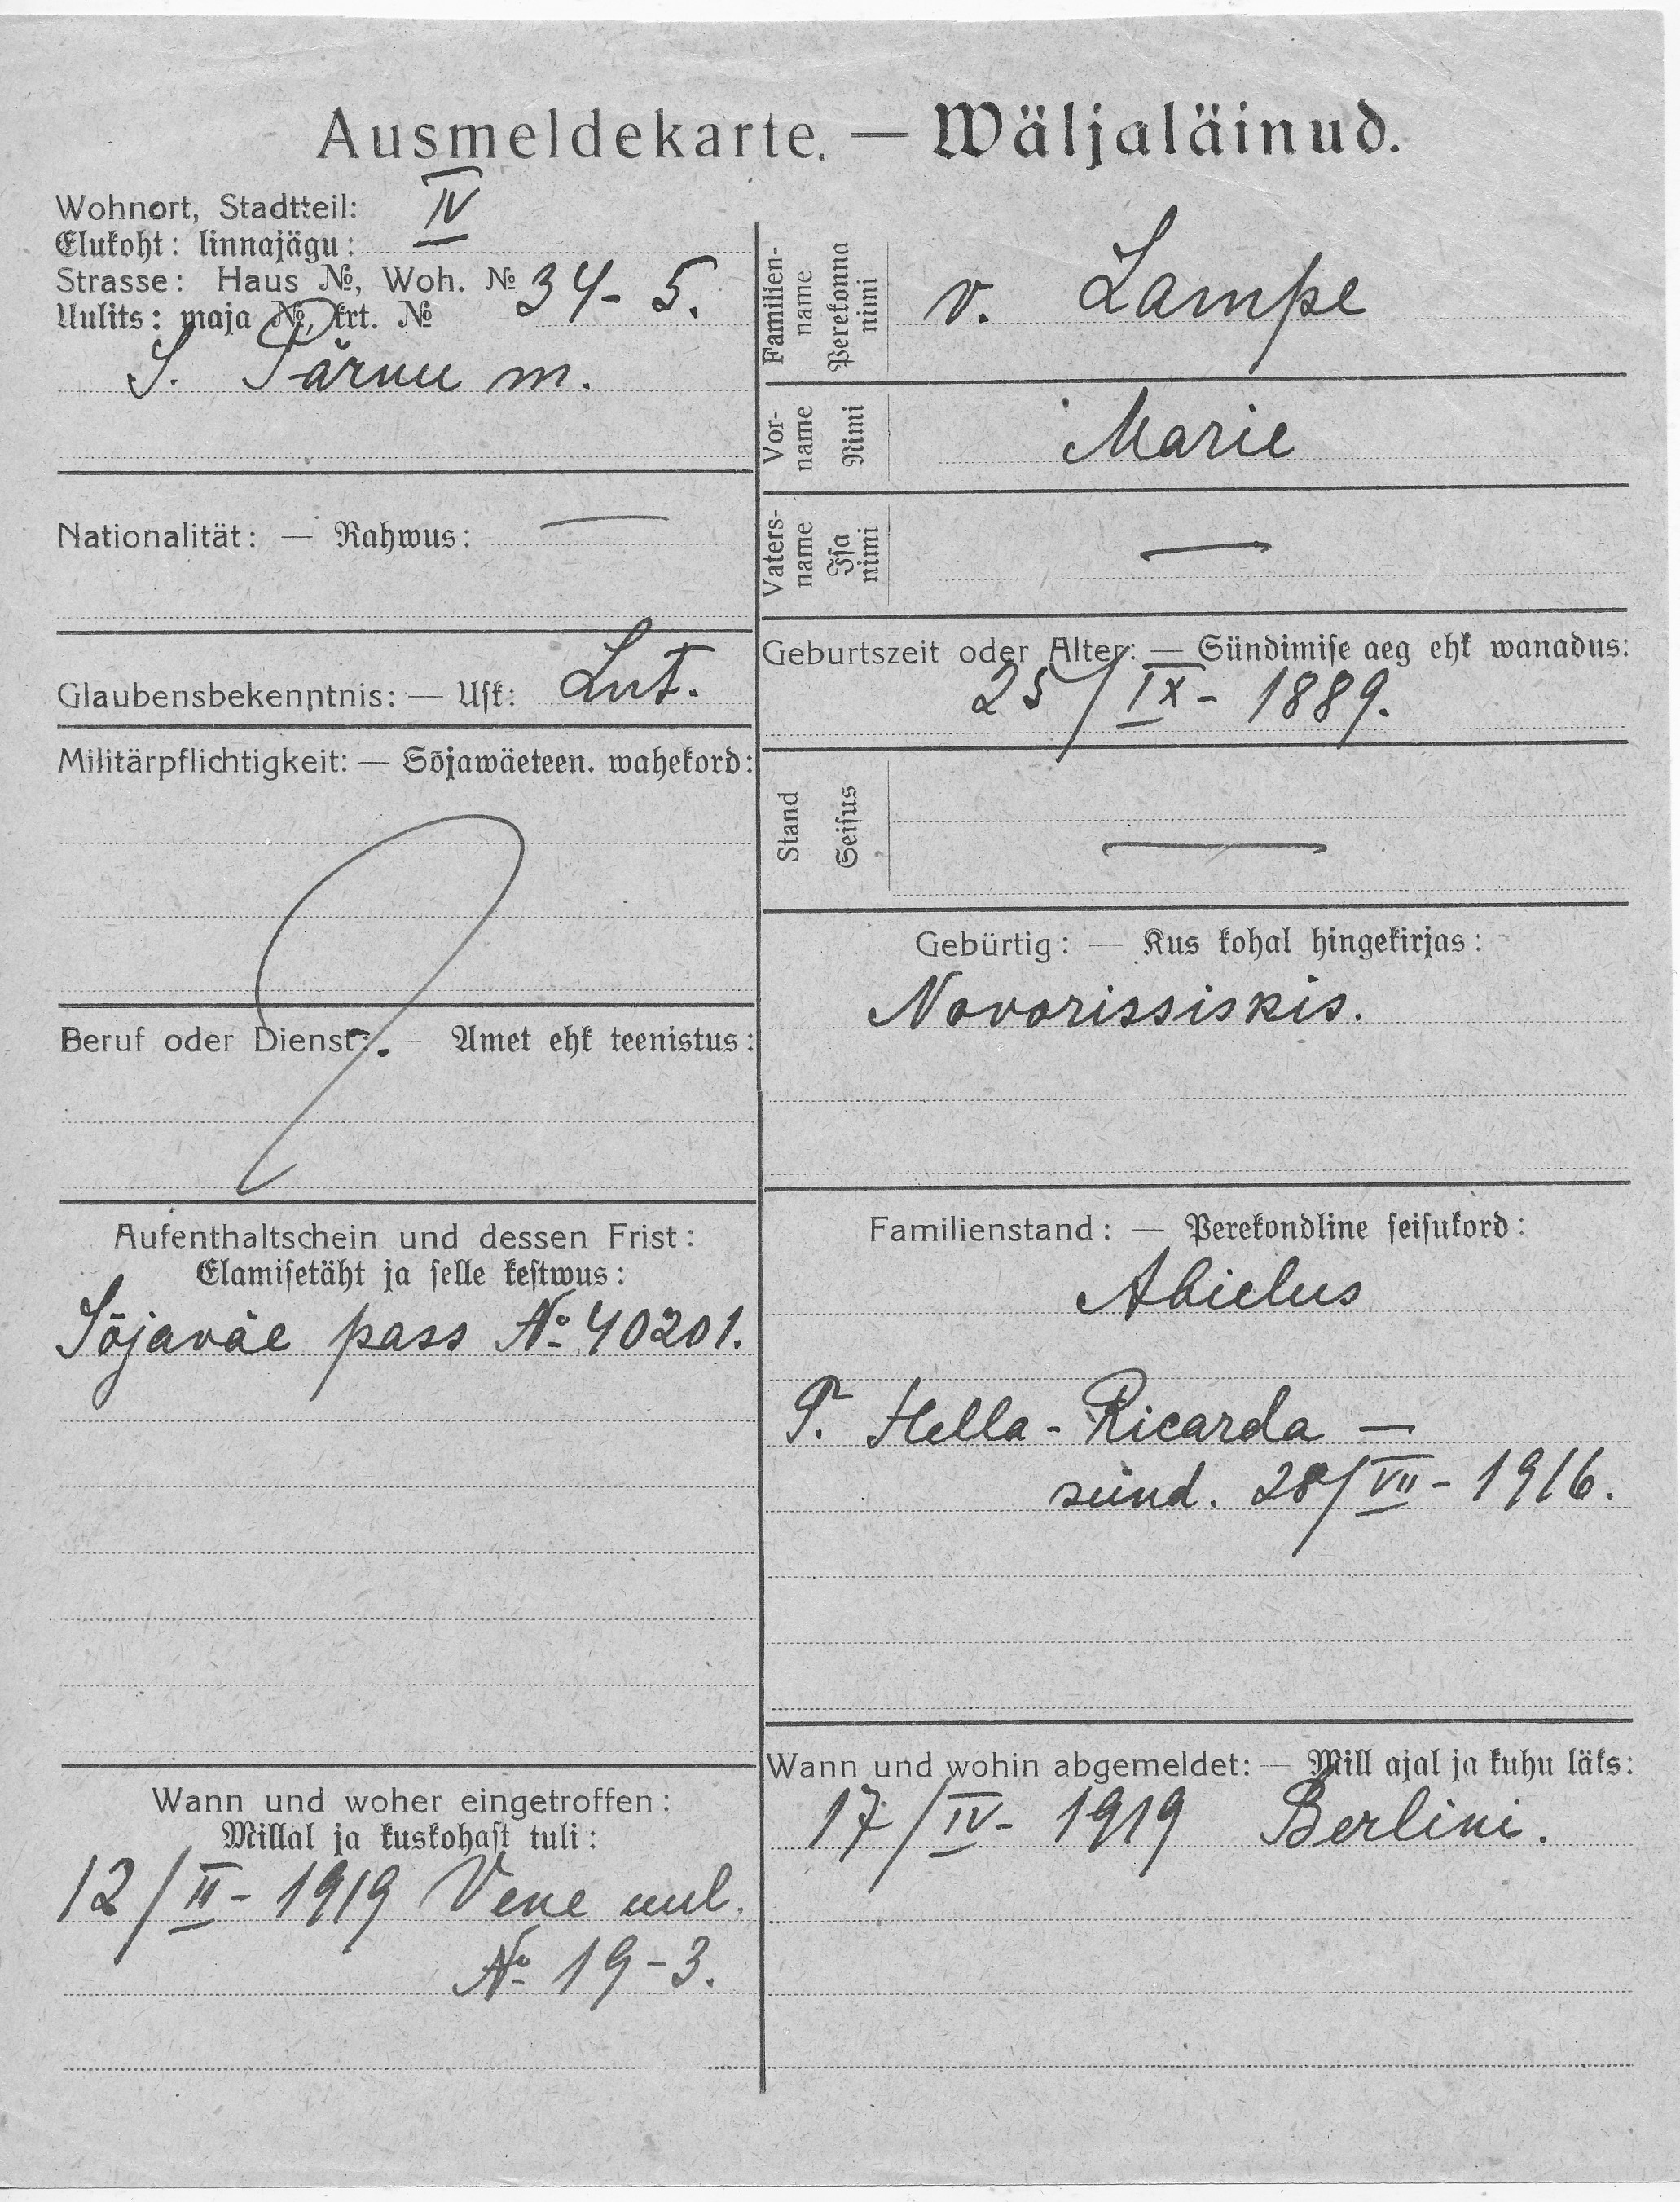 Ausmeldekarte. — Wäljaläinud.
Wohnort, Stadtteil: IV
Elukoht: linnajägu:
Strasse: Haus №, Woh. № 34- 5.
Uulits: maja №, krt. №
S. Pärnu m.
Nationalität: — Rahwus: —
Glaubensbekenntnis: — Usk: Lut.
Militärpflichtigkeit: — Sõjawäeteen. wahekord:
Beruf oder Dienst: — Amet ehk teenistus:
Aufenthaltschein und dessen Frist:
Elamisetäht ja selle kestwus:
Sõjaväe pass № 40201.
Wann und woher eingetroffen:
Millal ja kuskohast tuli:
12/II- 1919 Vene uul.
№ 19-3.
Familien-
name
Perekonna
nimi
v. Lampe
Vor-
name
Nimi
Marie
Vaters-
name
Isa
nimi
—
Geburtszeit oder Alter: — Sündimise aeg ehk wanadus:
25/IX- 1889.
Stand
Seisus
—
Gebürtig: — Kus kohal hingekirjas:
Novorissiskis.
Familienstand: — Perekondline seisukord:
Abielus
T. Hella-Ricarda —
sünd. 28/VII- 1916.
Wann und wohin abgemeldet: — Mill ajal ja kuhu läks:
17/IV- 1919 Berlini.